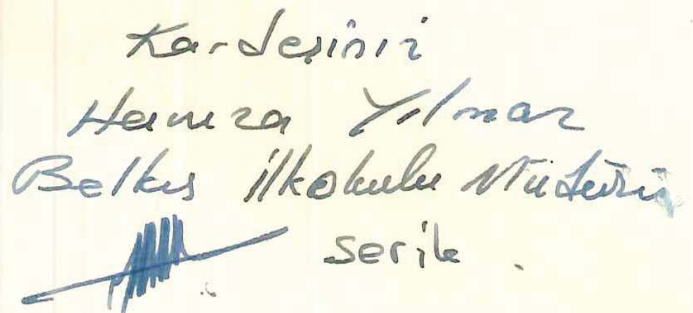 Kardeşiniz
Hamza Yılmaz
Belkıs İlkokulu Müdürü
Serik.